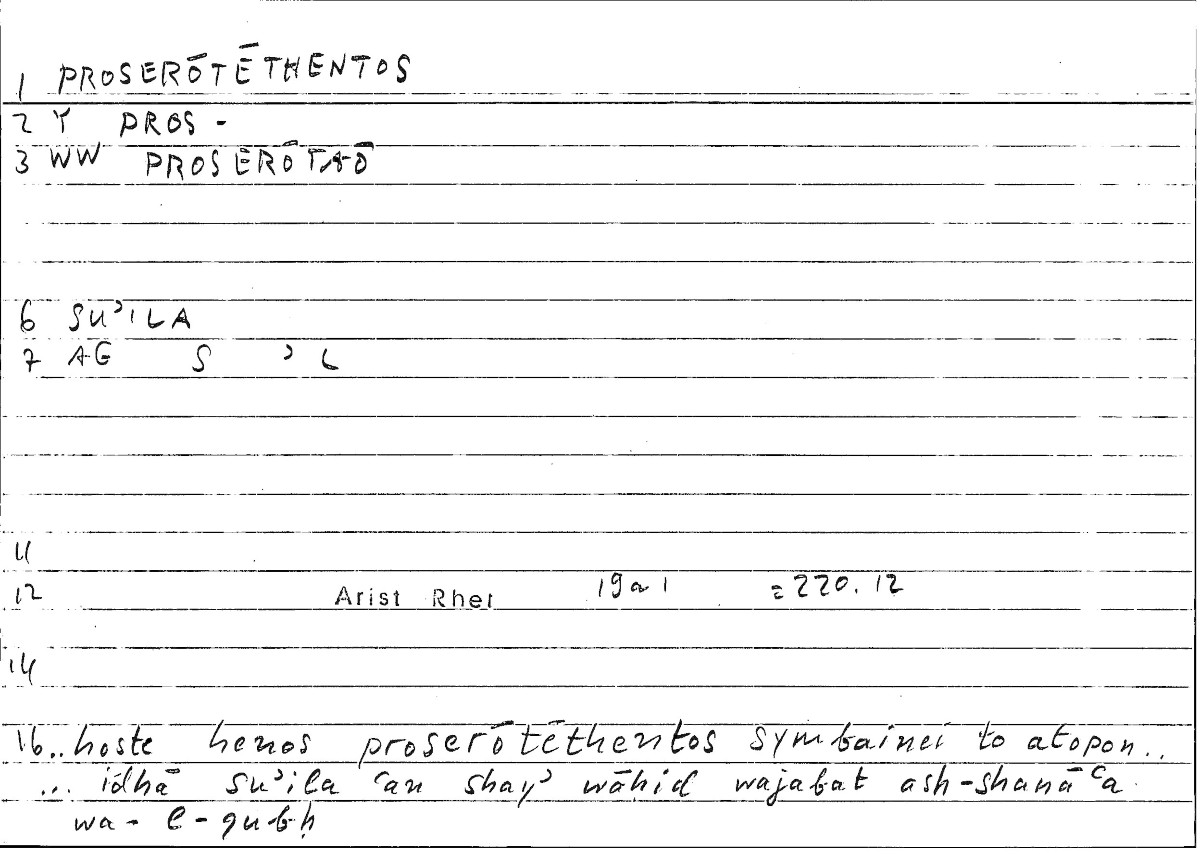 1 PROSERŌTĒTHENTOS
2 Y PROS -
3 WW PROSERŌTAŌ
6 SU'ILA
7 AG S ' L
11
12 Arist Rhet 19a1 =220.12
14
16.. hoste henos proserōtēthentos symbainei to atopon..
... idhā su'ila ʿan shay' wāḥid wajabat ash-shanāʿa
wa-l-qubḥ